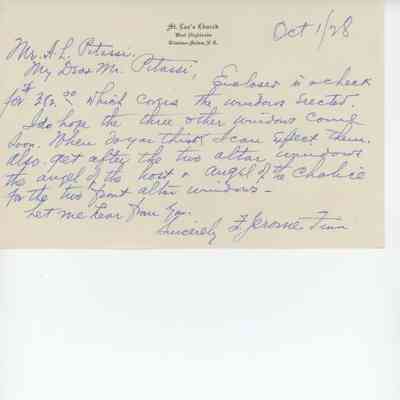 St. Leo's Church
West Highlands
Winston-Salem, N.C.
Oct 1/28
Mr. A. L. Pitassi.
My Dear Mr. Pitassi,
Enclosed is a check
for $ 00 which covers the windows erected.
I do hope the three other windows come
soon. When do you think I can expect them.
also get after the two altar windows
the angel of the host + angel of the chalice
for the two front altar windows -
Let me hear from you.
Sincerely F. Jerome Finn